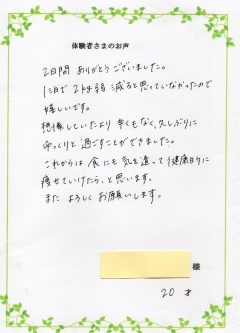 体験者さまのお声
2日間 ありがとうございました。
1泊で2kg弱 減ると思っていなかったので
嬉しいです。
想像していたより 辛くもなく、久しぶりに
ゆっくりと 過ごすことができました。
これからは 食にも 気を遣って 健康的に
痩せていけたら、と思います。
また よろしく お願いします。
様
20 才